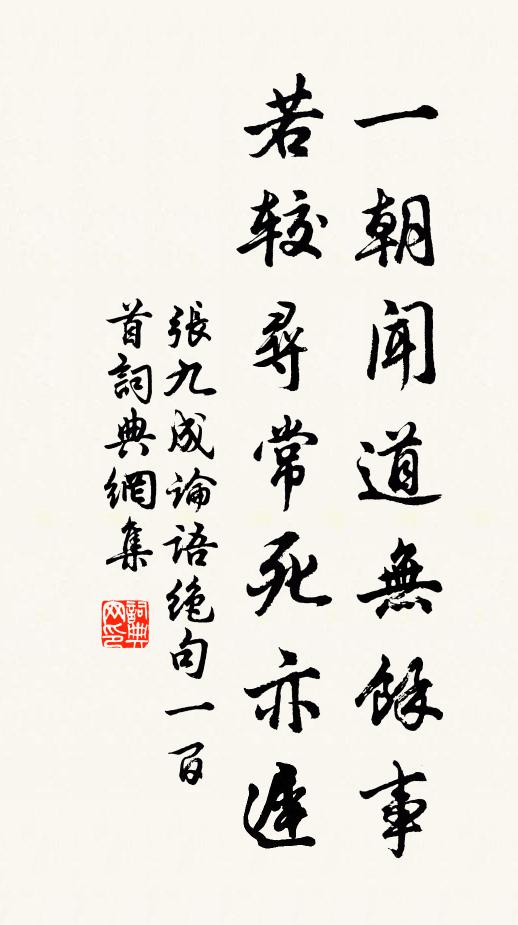 一朝聞道無餘事
若較尋常死亦遲
張九成論語絶句一百
首詞典網集
詞典网印